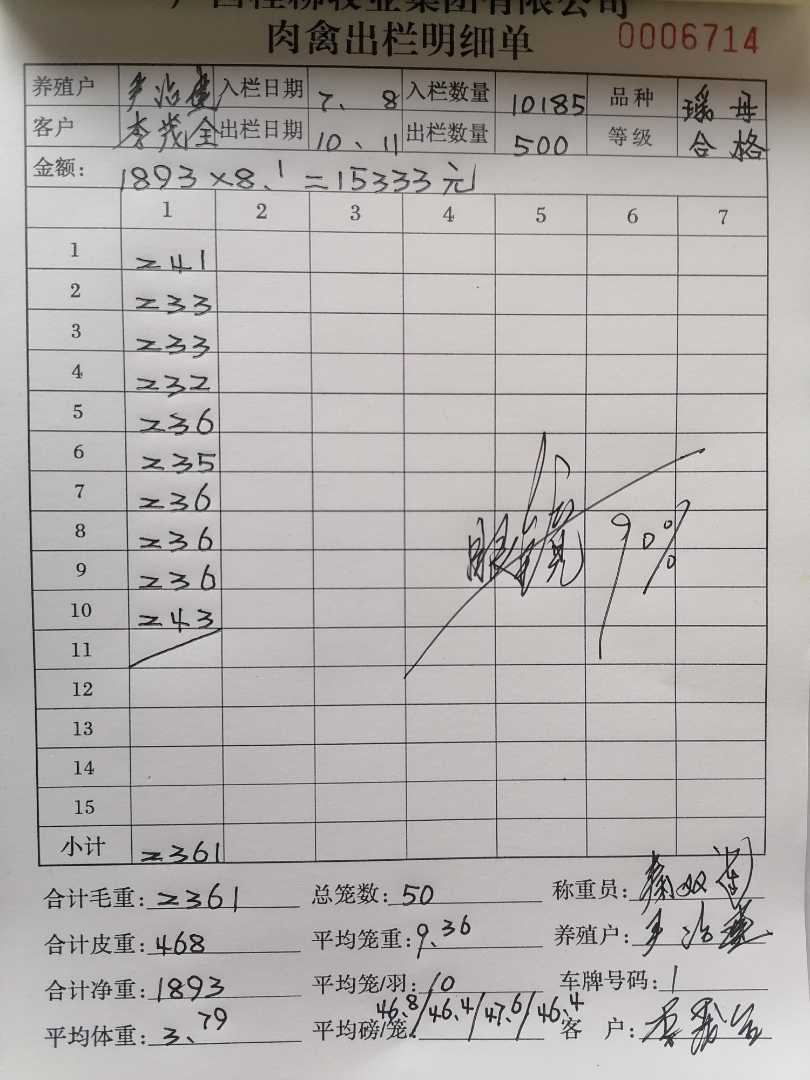 广西桂柳牧业集团有限公司
肉禽出栏明细单 0006714
养殖户 入栏日期 7、8 入栏数量 10185 品种 瑶母
客户 李茂全 出栏日期 10、11 出栏数量 500 等级 合格
金额: 1893×8.1=15333元
1 2 3 4 5 6 7
1 241
2 233
3 233
4 232
5 236
6 235
7 236
8 236
9 236
10 243
11
12
13
14
15
90%
小计 2361
合计毛重: 2361 总笼数: 50 称重员:
合计皮重: 468 平均笼重: 9.36 养殖户:
合计净重: 1893 平均笼/羽: 10 车牌号码: 1
平均体重: 3.79 平均磅/笼: 46.8/46.4/47.6/46.4 客户: